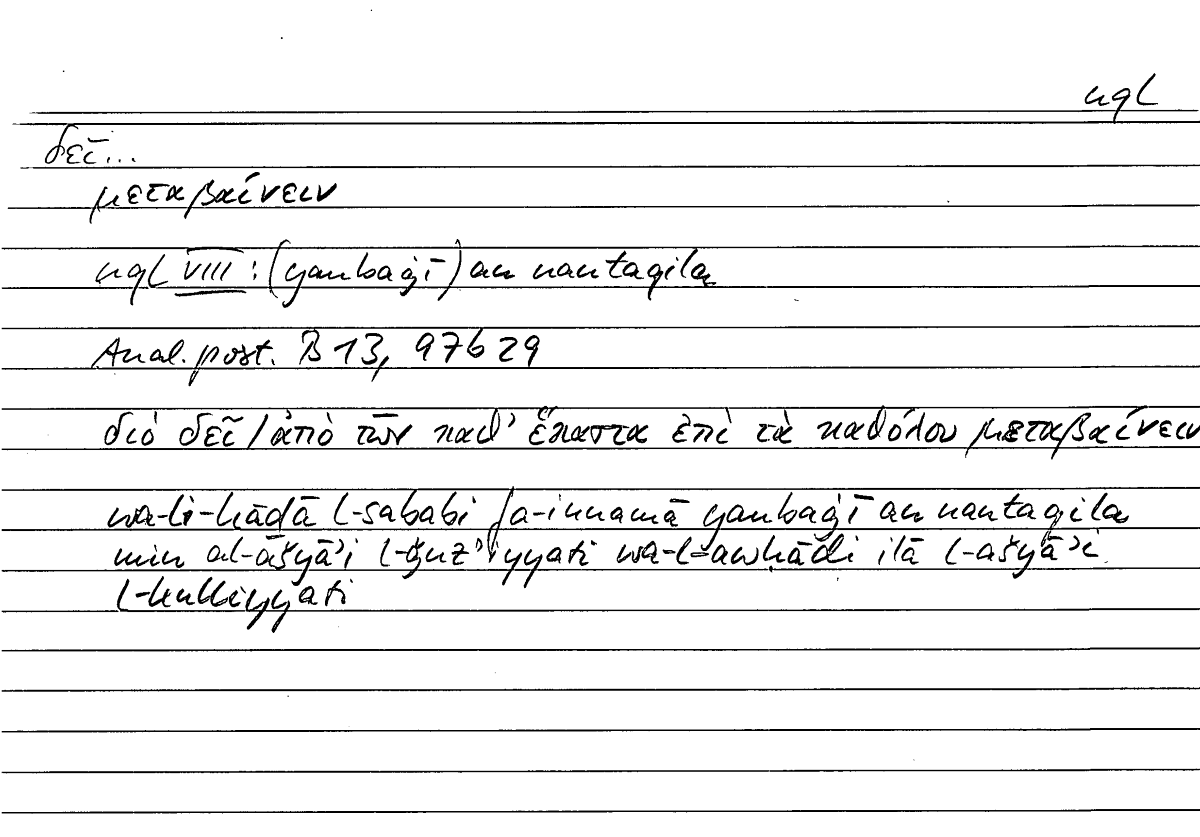 nql
δεῖ...
μεταβαίνειν
nql VIII : (yanbaġī) an nantaqila
Anal. post. B 13, 97b29
διὸ δεῖ / ἀπὸ τῶν καθ' ἕκαστα ἐπὶ τὰ καθόλου μεταβαίνειν
wa-li-hāḏā l-sababi fa-innamā yanbaġī an nantaqila
min al-ašyāʾi l-ǧuzʾiyyati wa-l-awḥādi ilā l-ašyāʾi
l-kulliyyati